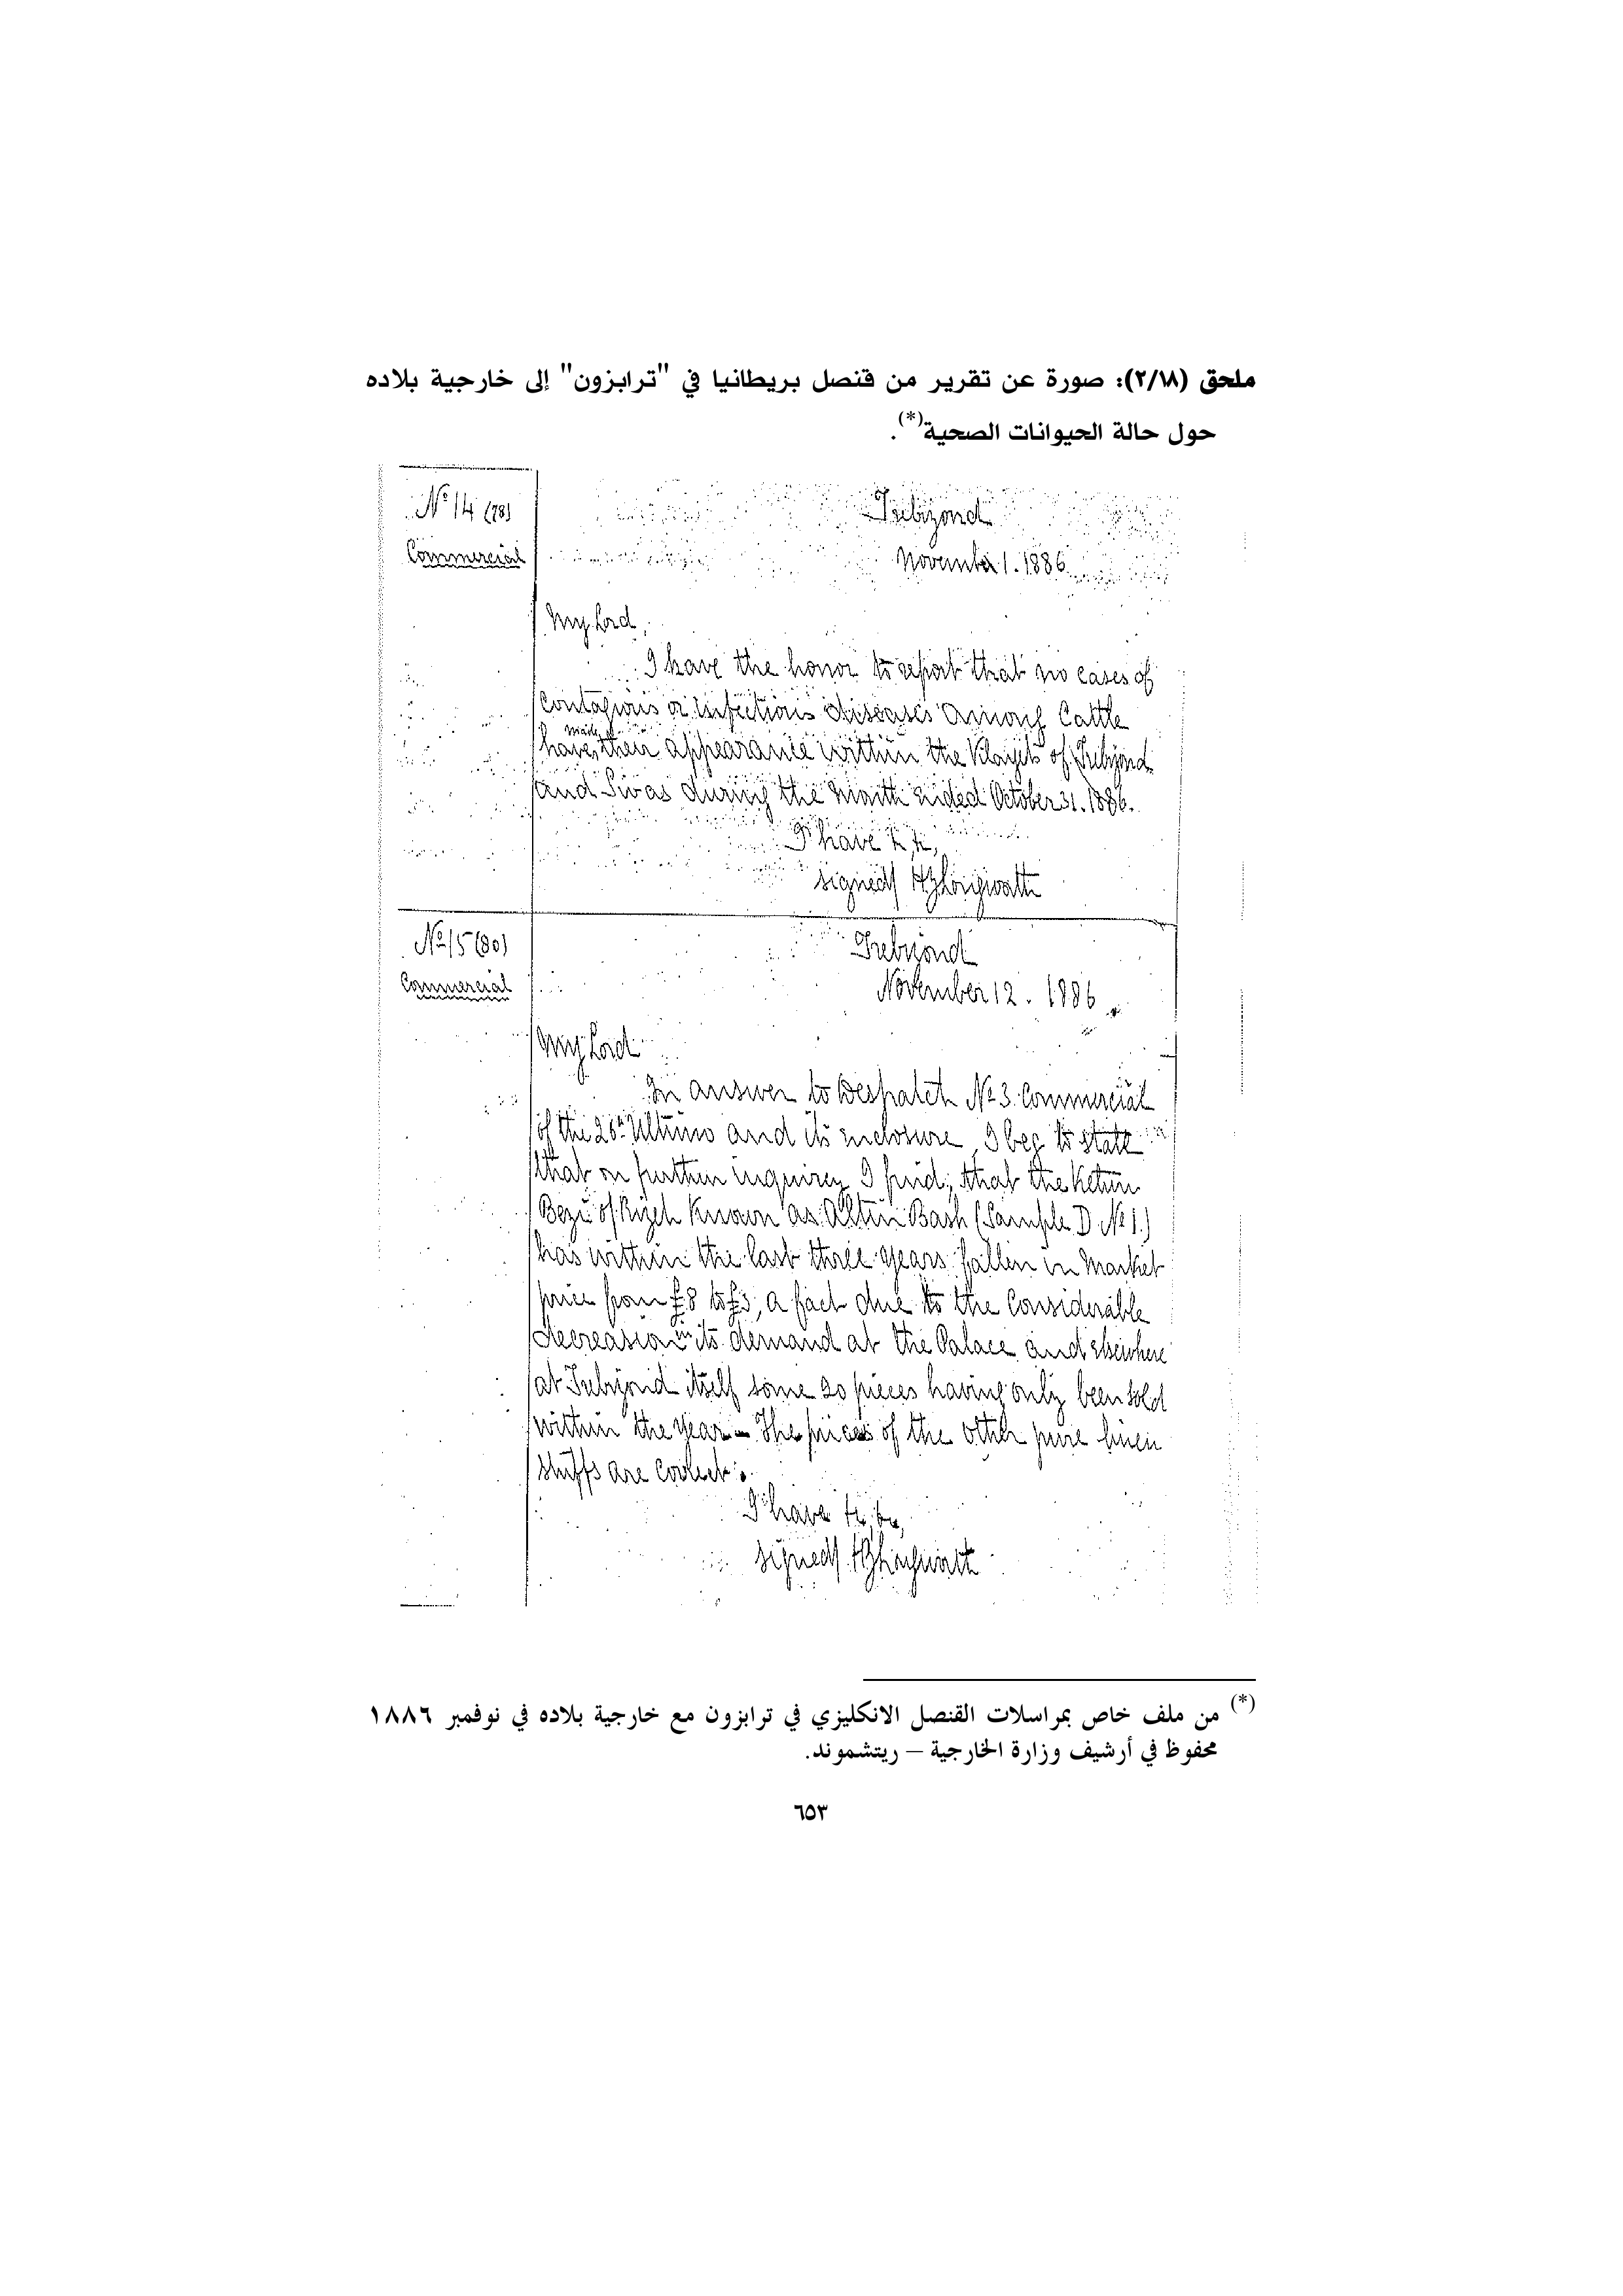 ملحق (٢/١٨): صورة عن تقرير من قنصل بريطانيا في "ترابزون" إلى خارجية بلاده
حول حالة الحيوانات الصحية(*).
Nº 14 (78)
Commercial
Trebizond
November 1. 1886
My Lord,
I have the honor to report that no cases of
contagious or infectious diseases among Cattle
have made their appearance within the Vilayets of Trebizond
and Sivas during the month ended October 31. 1886.
I have &c,
signed/ HZLongworth
Nº 15 (80)
Commercial
Trebizond
November 12. 1886
My Lord
In answer to Despatch Nº 3 Commercial
of the 26th Ultimo and its enclosure, I beg to state
that on further inquirey I find, that the Ketun
Bezi of Rizeh known as Altin Bash (Sample D Nº 1.)
has within the last three years fallen in Market
price from £8 to £3, a fact due to the considerable
decreasion in its demand at the Palace and elsewhere
at Trebizond itself some 20 pieces having only been sold
within the year - The prices of the other pure linen
stuffs are correct.
I have &c,
signed/ HZLongworth
(*) من ملف خاص بمراسلات القنصل الانكليزي في ترابزون مع خارجية بلاده في نوفمبر ١٨٨٦
محفوظ في أرشيف وزارة الخارجية – ريتشموند.
٦٥٣